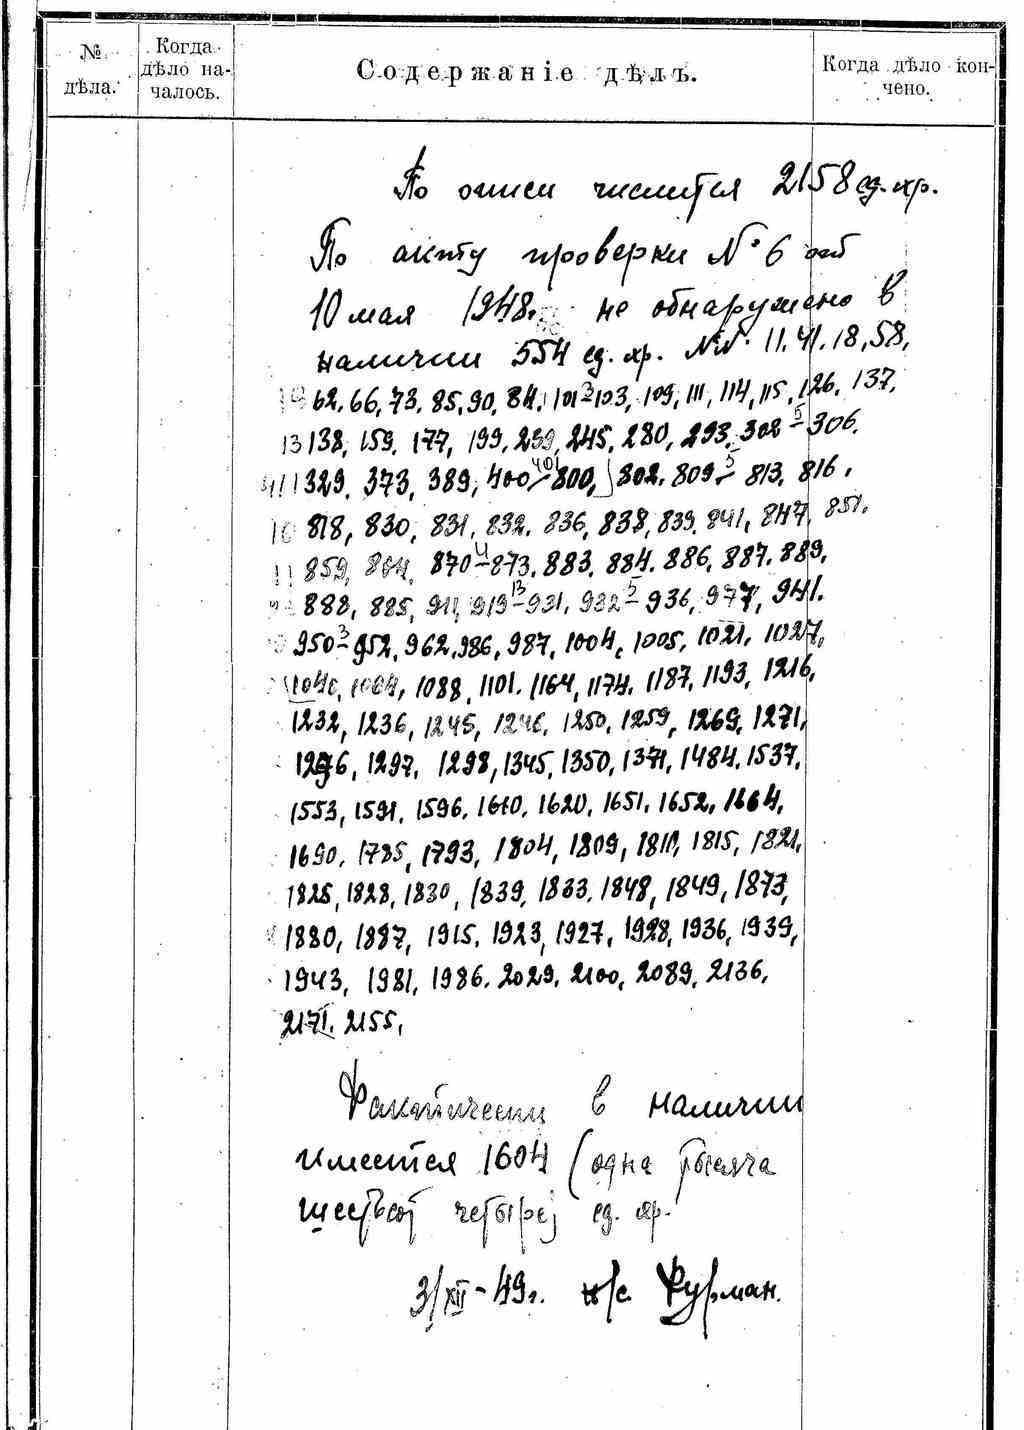 № дѣла.
Когда дѣло на-
чалось.
Содержаніе дѣлъ.
Когда дѣло кон-
чено.
По описи числится 2158 ед. хр.
По акту проверки № 6 от
10 мая 1948г. не обнаружено в
наличии 554 ед. хр. №№ 11, 41, 18, 58,
62, 66, 73, 85, 90, 84, 101-103, 109, 111, 114, 115, 126, 137,
13 138, 159, 177, 199, 239, 245, 280, 293, 302-306,
329, 373, 389, 400-800, 802, 809-813, 816,
818, 830, 831, 832, 836, 838, 839, 841, 847, 851,
11 859, 864, 870-873, 883, 884, 886, 887, 889,
888, 885, 911, 919-931, 932-936, 977, 941.
950-952, 962, 986, 987, 1004, 1005, 1021, 1027,
1040, 1064, 1088, 1101, 1164, 1174, 1187, 1193, 1216,
1232, 1236, 1245, 1246, 1250, 1259, 1269, 1271,
1296, 1297, 1298, 1345, 1350, 1371, 1484, 1537,
1553, 1591, 1596, 1610, 1620, 1651, 1652, 1664,
1690, 1785, 1793, 1804, 1809, 1810, 1815, 1821,
1825, 1828, 1830, 1839, 1833, 1848, 1849, 1873,
1880, 1887, 1915, 1923, 1927, 1928, 1936, 1939,
1943, 1981, 1986, 2029, 2100, 2089, 2136,
2171, 2155,
Фактически в наличии
имеется 1604 (одна тысяча
шестьсот четыре) ед. хр.
3/XII-49г. н/с. Фурман.